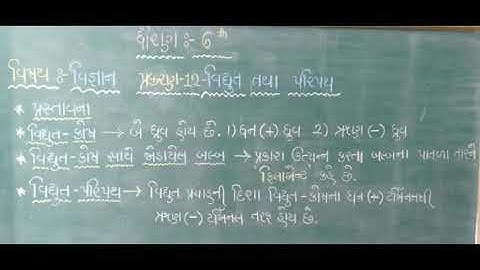 ધોરણ :- 6th
વિષય :- વિજ્ઞાન પ્રકરણ-12-વિદ્યુત તથા પરિપથ
* પ્રસ્તાવના
* વિદ્યુત-કોષ → બે ધ્રુવ હોય છે. 1) ધન (+) ધ્રુવ 2) ઋણ (-) ધ્રુવ
* વિદ્યુત-કોષ સાથે જોડાયેલ બલ્બ → પ્રકાશ ઉત્પન્ન કરતા બલ્બના પાતળા તારને
ફિલામેન્ટ કહે છે.
* વિદ્યુત-પરિપથ → વિદ્યુત પ્રવાહની દિશા વિદ્યુત-કોષના ધન (+) ટર્મિનલથી
ઋણ (-) ટર્મિનલ તરફ હોય છે.